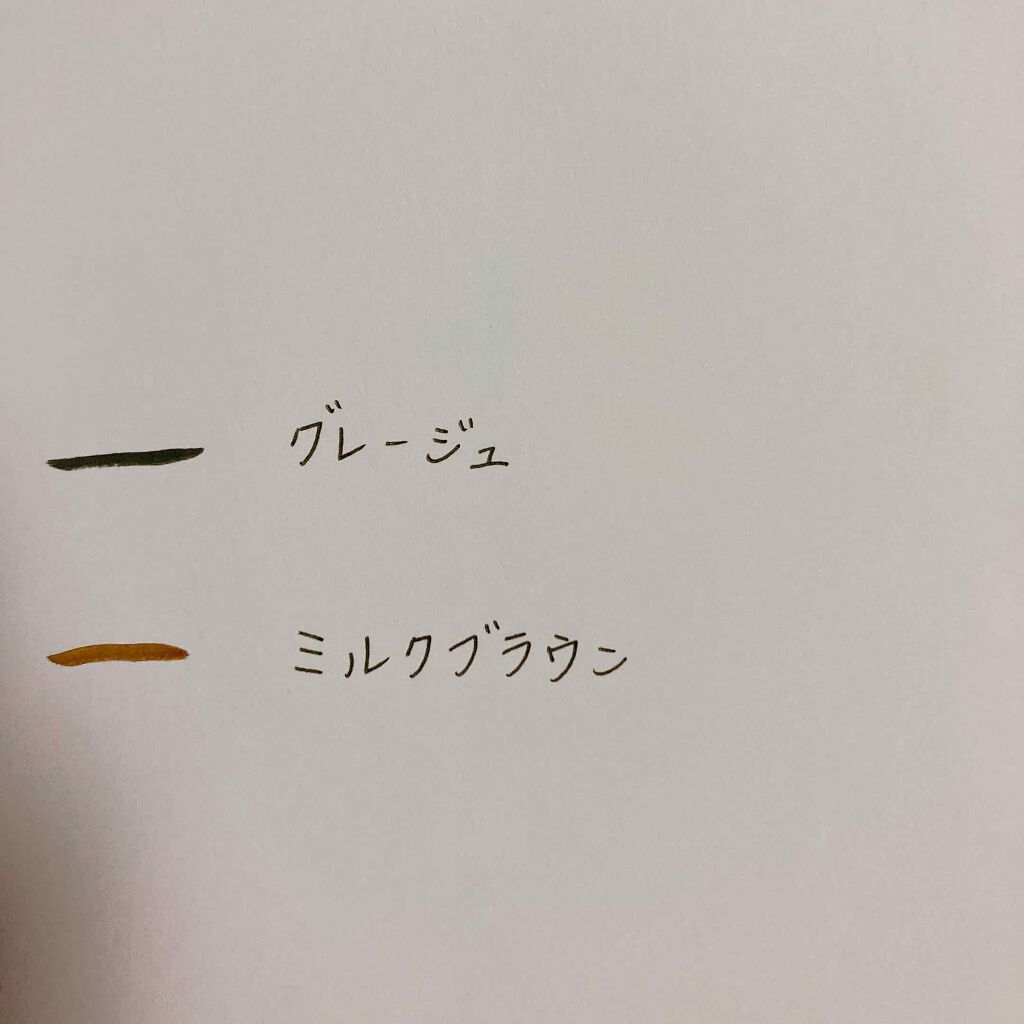 グレージュ
ミルクブラウン